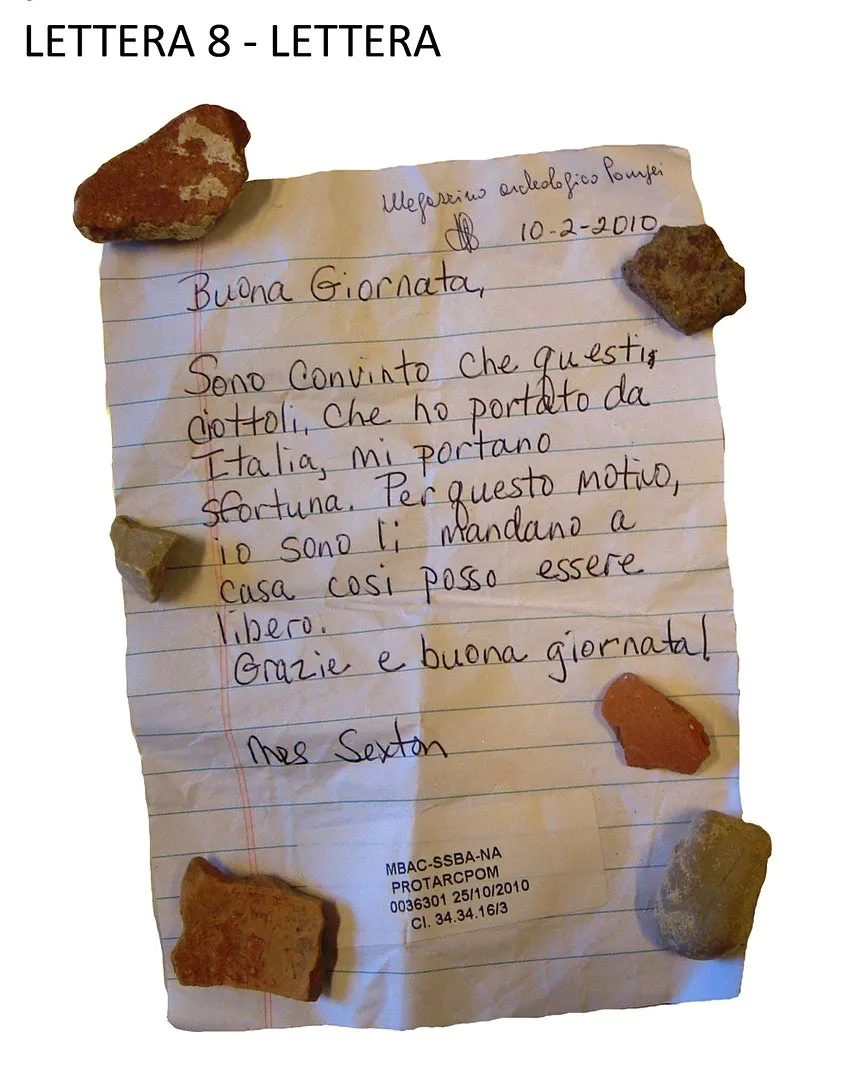 LETTERA 8 - LETTERA
archeologico Pompei
10-2-2010
Buona Giornata,
Sono convinto che questi
ciottoli, che ho portato da
Italia, mi portano
sfortuna. Per questo motivo,
io sono li mandano a
casa cosi posso essere
libero.
Grazie e buona giornata!
Sexton
MBAC-SSBA-NA
PROTARCPOM
0036301 25/10/2010
Cl. 34.34.16/3